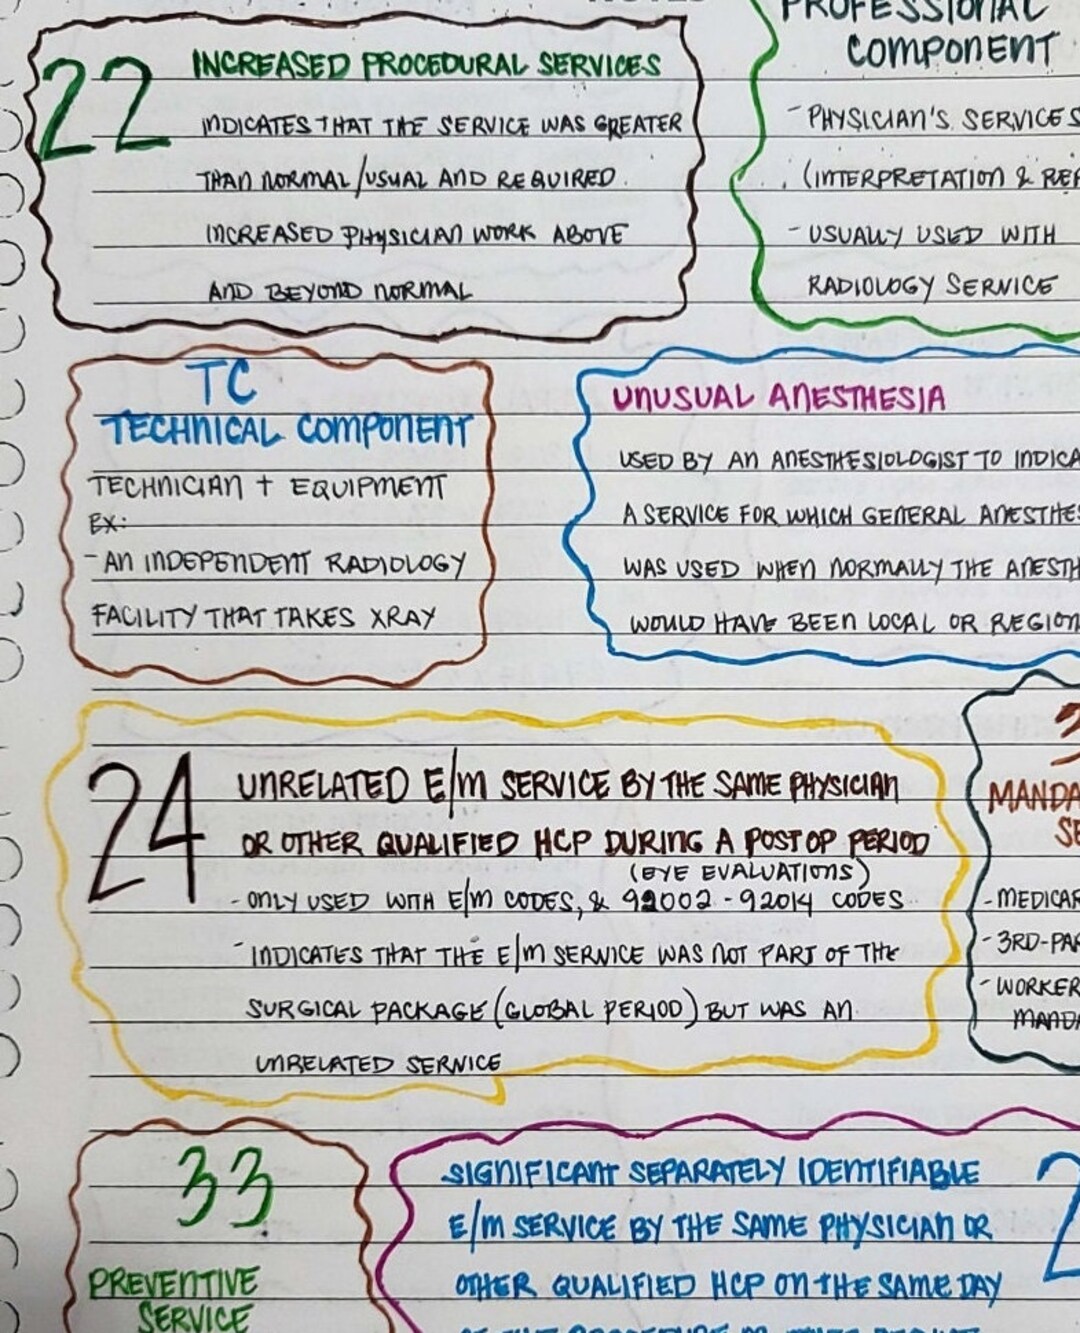 22
INCREASED PROCEDURAL SERVICES
INDICATES THAT THE SERVICE WAS GREATER
THAN NORMAL/USUAL AND REQUIRED
INCREASED PHYSICIAN WORK ABOVE
AND BEYOND NORMAL
PROFESSIONAL
COMPONENT
- PHYSICIAN'S SERVICES
(INTERPRETATION & REP
- USUALLY USED WITH
RADIOLOGY SERVICE
TC
TECHNICAL COMPONENT
TECHNICIAN + EQUIPMENT
EX:
- AN INDEPENDENT RADIOLOGY
FACILITY THAT TAKES XRAY
UNUSUAL ANESTHESIA
USED BY AN ANESTHESIOLOGIST TO INDICA
A SERVICE FOR WHICH GENERAL ANESTHES
WAS USED WHEN NORMALLY THE ANESTH
WOULD HAVE BEEN LOCAL OR REGION
24
UNRELATED E/M SERVICE BY THE SAME PHYSICIAN
OR OTHER QUALIFIED HCP DURING A POSTOP PERIOD
(EYE EVALUATIONS)
- ONLY USED WITH E/M CODES, & 92002 - 92014 CODES
- INDICATES THAT THE E/M SERVICE WAS NOT PART OF THE
SURGICAL PACKAGE (GLOBAL PERIOD) BUT WAS AN
UNRELATED SERVICE
3
MANDA
SE
- MEDICAR
- 3RD-PAR
- WORKER
MANDA
33
PREVENTIVE
SERVICE
SIGNIFICANT SEPARATELY IDENTIFIABLE
E/M SERVICE BY THE SAME PHYSICIAN OR
OTHER QUALIFIED HCP ON THE SAME DAY
2